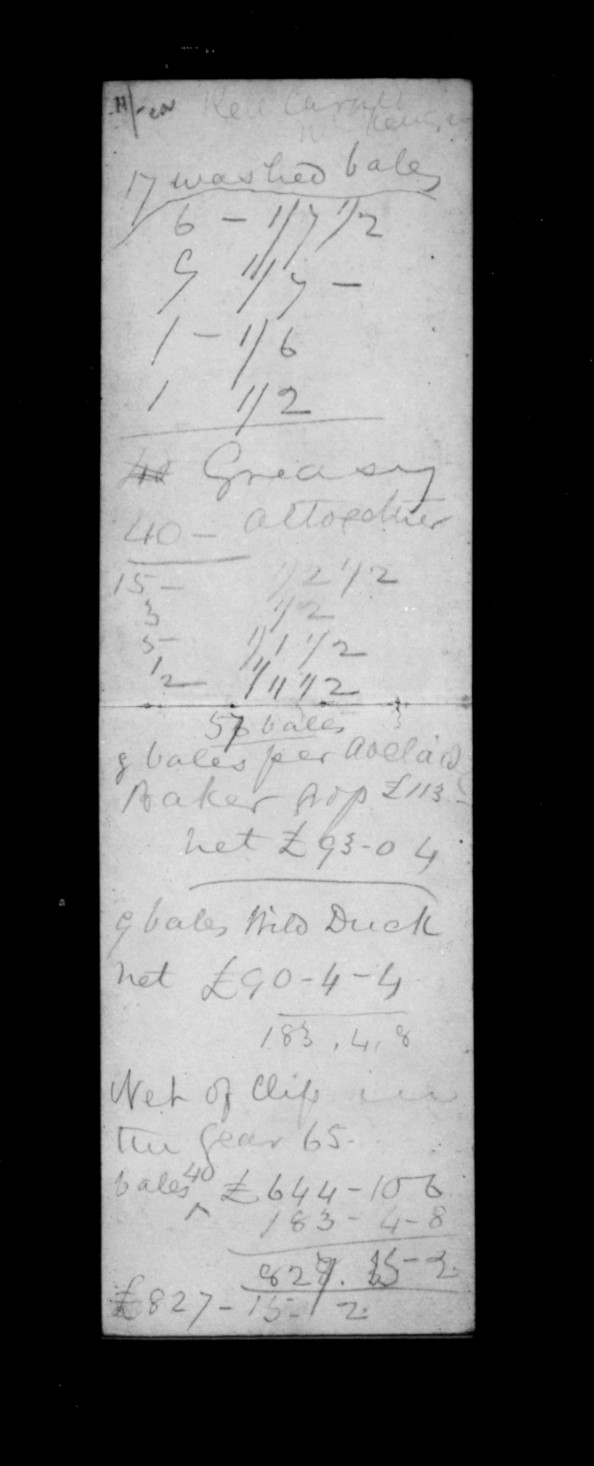 17 washed bales
6 - 1/7 1/2
9 1/7 -
1 - 1/6
1 1/2
Greasy
40 - altogether
15 - 1/2 1/2
3 1/2
5 1/1 1/2
12 1/11 1/2
57 bales
9 bales per Adelaide
Baker grop £113
net £93-0 4
9 bales Wild Duck
net £90-4-4
183.4.8
Net of Clip in
the year 65-
bales 40 £644-10 6
183-4-8
827. 15-2
£827-15-2